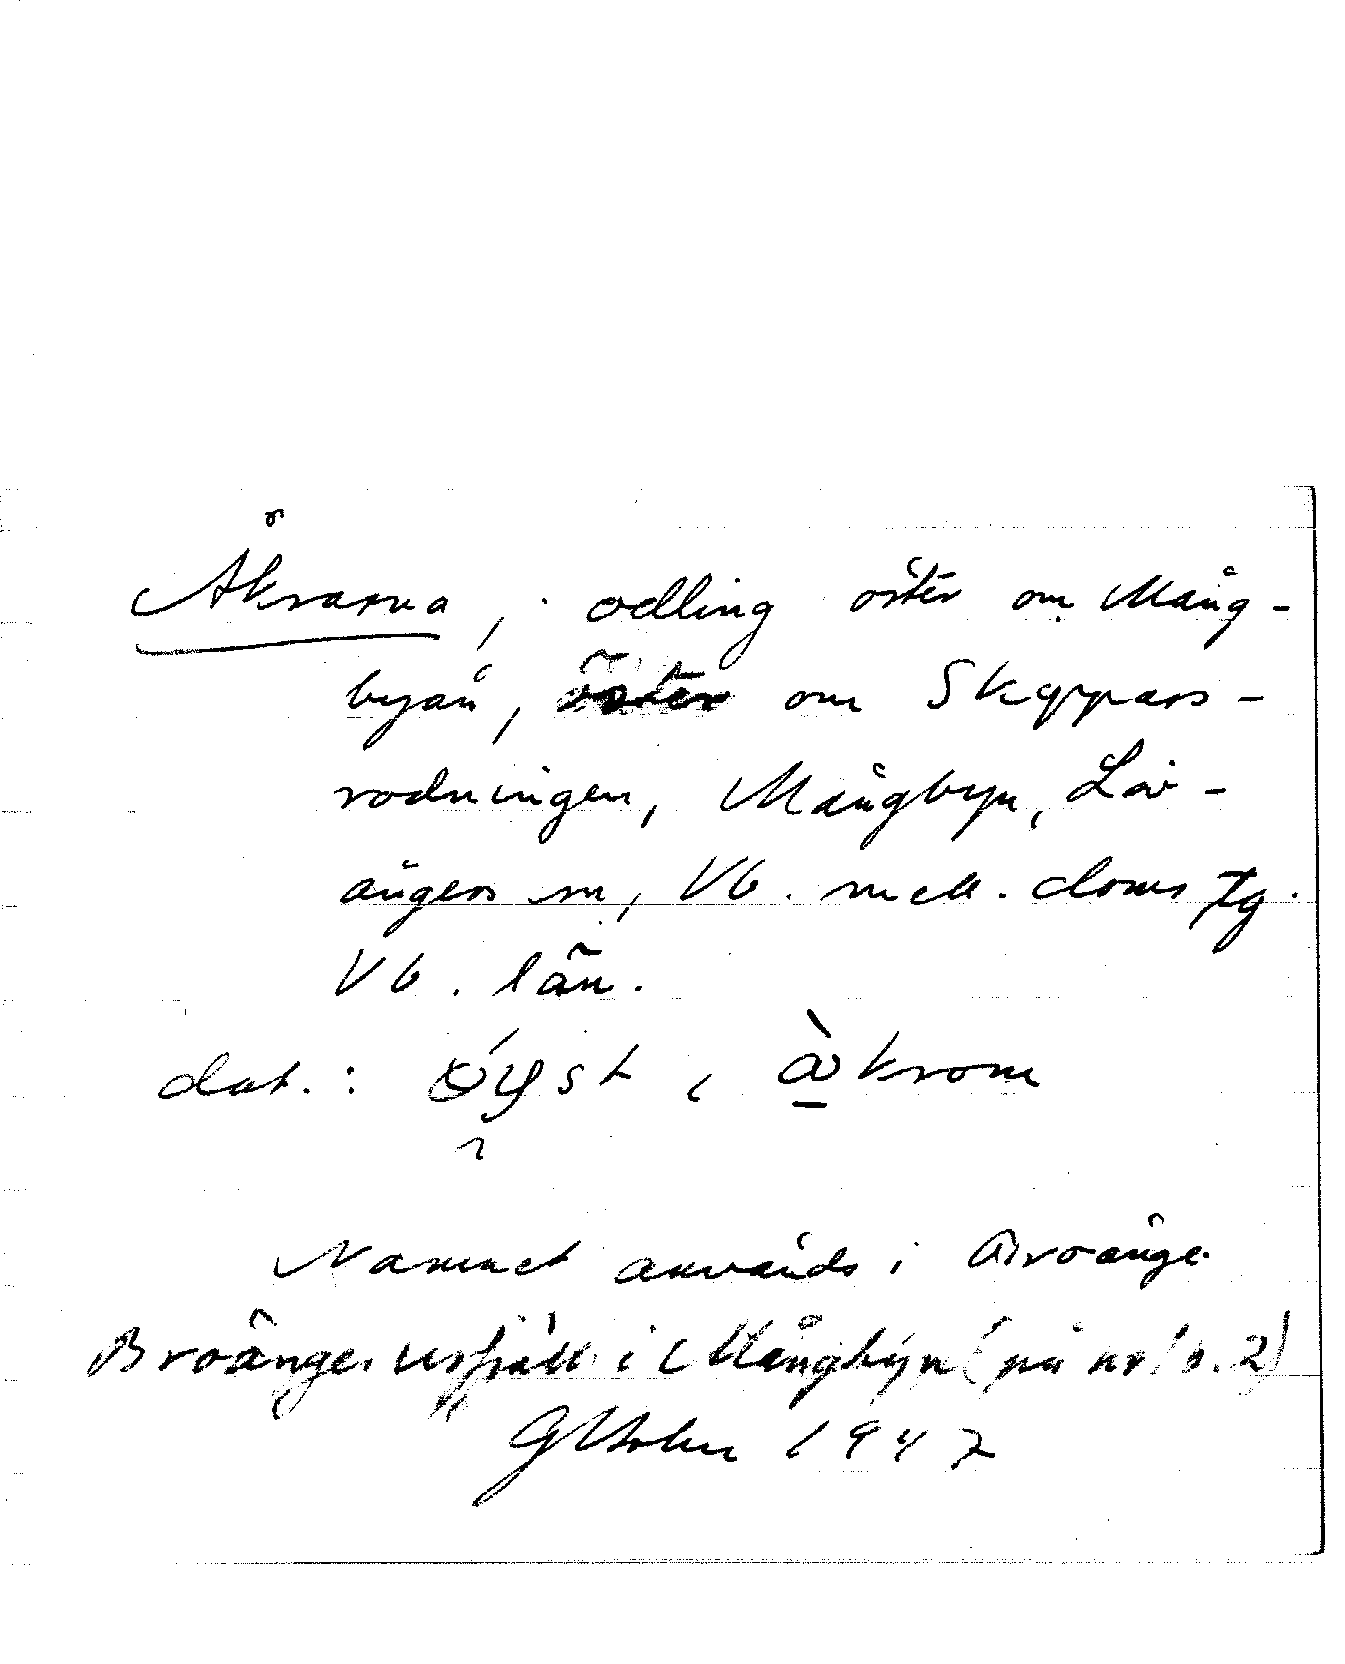 Åkrarna, odling öster om Mång-
byån, öster om Skeppars-
rodningen, Mångbyn, Löv-
ångers sn, Vb. mell. doms tg.
Vb. län.
dat.: åkrom
Namnet används i Broänge.
Broänge, i Mångbyn (på nr 1 o. 2)
1947